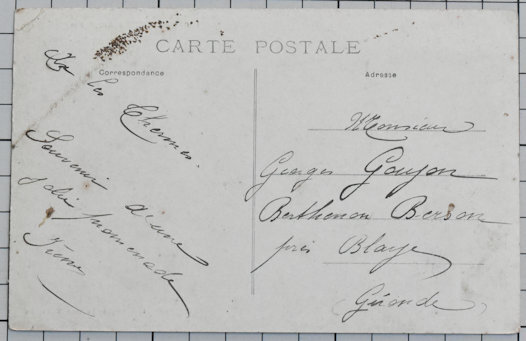 CARTE POSTALE
Correspondance
Adresse
les Thermes.
Souvenir d'une
jolie promenade
Monsieur
Georges Goujon
Berthenon Berson
près Blaye
(Gironde)